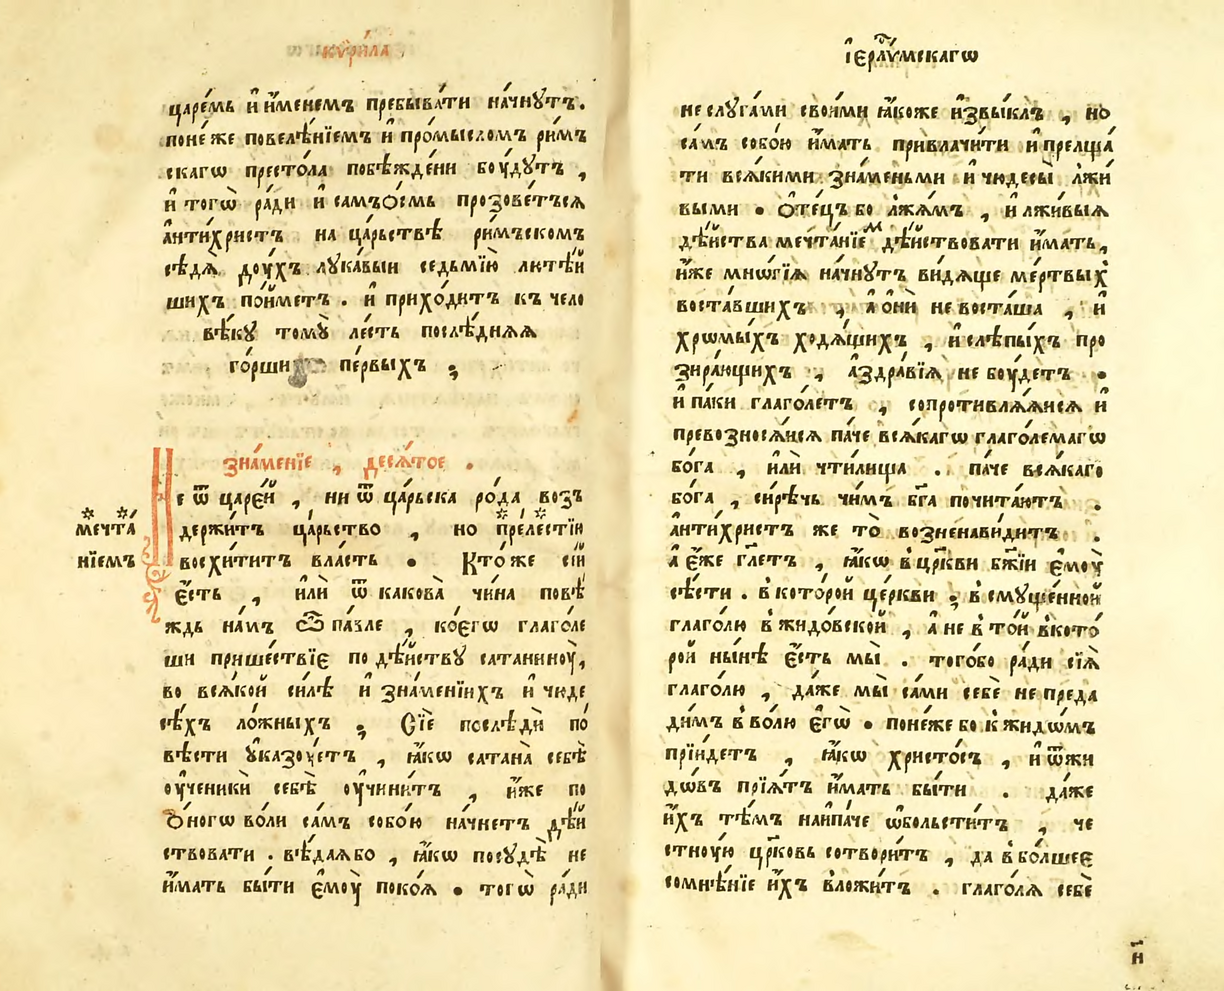 КѴРИ́ЛА
царе́мь и҆ и҆́менемъ пребыва́ти на́чнꙋтъ.
поне́же повелѣ́нїемъ и҆ про́мысломъ ри́мъ
скагѡ престо́ла побѣжде́ни бѹ́дѹтъ ,
и҆ тогѡ̀ ра́ди и҆ самъѻ́смь прозове́тъсѧ
а҆нтихристъ на ца́рьствѣ ри́мъском
сѣдѧ̀ дѹ́хъ лꙋка́выи седьмїю лютѣ́й
шихъ по́йметъ . и҆ прихо́дитъ къ чело
вѣ́кꙋ томꙋ̀ ле́сть послѣ́днѧѧ
го́рши пе́рвыхъ ;
зна́менїе , десѧ́тое .
Не ѿ царе́й , ни ѿ ца́рьска ро́да возъ
держи́тъ ца́рьство , но пре́лестїи
мечта́
нїемъ
восхи́титъ вла́сть . Кто́же сїй
є҆́сть , и҆лѝ ѿ какова̀ чи́на повѣ́
ждь на́мъ ѽ па́вле , ко́єгѡ глаго́ле
ши прише́ствїе по дѣ́йствꙋ сатанинѹ̀,
во всѧ́кой си́лѣ и҆ зна́менїихъ и҆ чюде
сѣ́хъ ло́жныхъ ; Сїе послѣдѝ по́
вѣсти ꙋ҆казѹ́етъ , ꙗ҆́кѡ сатана̀ себѣ̀
ѹ҆ченикѝ себѣ̀ ѹ҆чини́тъ , и҆́же по
ѻ҆́ногѡ во́ли са́мъ собо́ю на́чнетъ дѣ́й
ствовати . вѣ́даѧбо , ꙗ҆́кѡ посꙋдѣ̀ не
и҆́мать бы́ти є҆мѹ̀ поко́ѧ . тогѡ̀ ра́ди
І҆ЕРЛⷭ҇ИМСКАГѠ
не слꙋга́ми свои́ми ꙗ҆́коже и҆звы́клъ , но̀
са́мъ собо́ю и҆́мать привлачи́ти и҆ прелща́
ти всѧ́кими зна́меньми и҆ чюдесы̀ лжи́
выми . Ѻ҆те́цъ бо лжа́мъ , и҆ лжи́выѧ
дѣ́йства мечта́нїемъ дѣ́йствовати и҆́мать,
и҆́же мнѡгїѧ на́чнꙋтъ ви́дѧще ме́ртвыхъ
воста́вшихъ , а҆ ѻ҆нѝ не воста́ша , и҆
хрѡмы́хъ ходѧ́щихъ , и҆ слѣпы́хъ про
зира́ющихъ , а҆здра́вїѧ не бѹ́детъ .
и҆ па́ки глаго́летъ , сопротивлѧ́ѧисѧ и҆
превозносѧ́исѧ па́че всѧ́кагѡ глаго́лемагѡ
бо́га , и҆лѝ чти́лища . па́че всѧ́каго
бо́га , си́рѣчь чи́мъ бг҃а почита́ютъ .
а҆нти́христъ же то̀ возненави́дитъ .
а҆ є҆́же гл҃етъ , ꙗ҆́кѡ в црⷦ҇ви бж҃їи є҆мѹ̀
сѣ́сти . в кото́рой це́ркви ; в смꙋще́нной
глаго́лю в жидо́вской , а҆ не в то́й в кото́
рой ны́нѣ є҆́сть мы̀ . тогѡ́бо ра́ди сїѧ̀
глаго́лю , да́же мы̀ са́ми себѐ не преда
ди́мъ в во́лю є҆гѡ̀ . поне́же бо к жидѡ́мъ
прїи́детъ , ꙗ҆́кѡ христо́съ , и҆ ѿ жи
дѡ́въ прїѧ́тъ и҆́мать бы́ти . да́же
и҆́хъ тѣ́мъ наипа́че ѡ҆больсти́тъ , че
стнѹ́ю црⷦ҇овь сотвори́тъ , да в бо́лшее
сомнѣ́нїе и҆́хъ вложи́тъ . глаго́лѧ себѐ
н҃